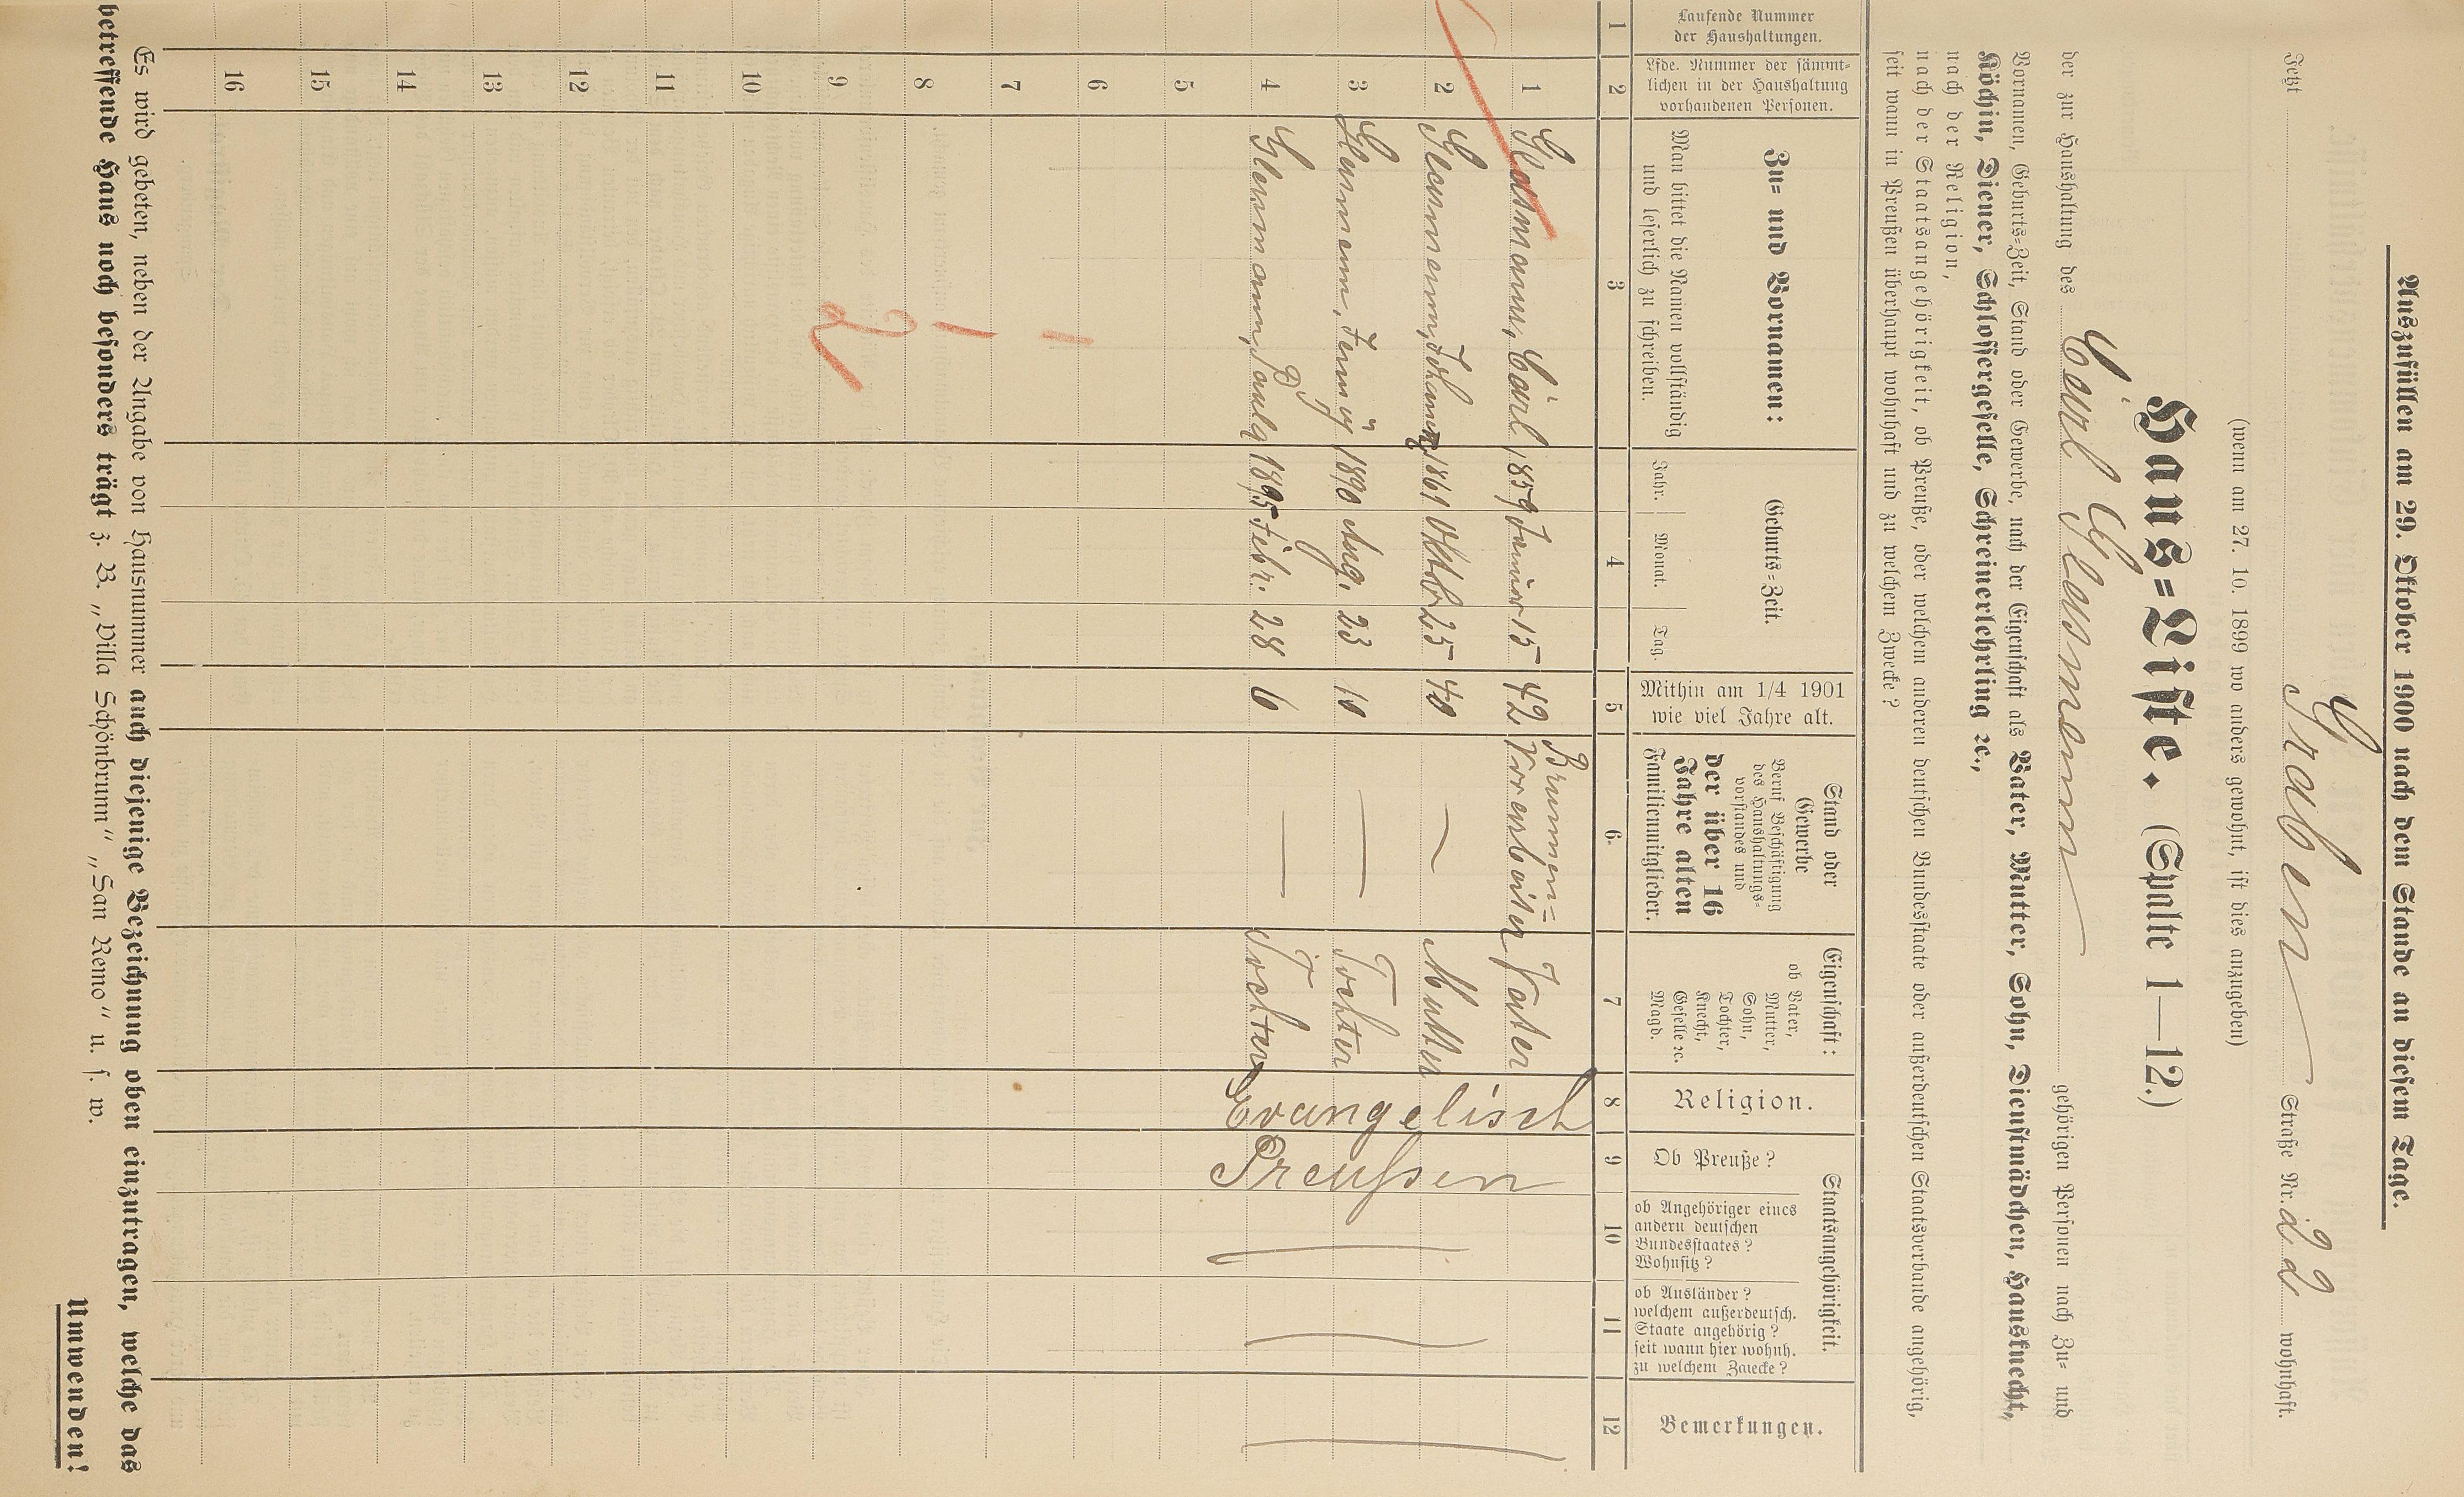 Auszufüllen am 29. Oktober 1900 nach dem Stande an diesem Tage.
Jetzt Graben Straße Nr. 22 wohnhaft.
(wenn am 27. 10. 1899 wo anders gewohnt, ist dies anzugeben)
Haus-Liste. (Spalte 1—12.)
der zur Haushaltung des Carl Hausmann gehörigen Personen nach Zu- und
Vornamen, Geburts-Zeit, Stand oder Gewerbe, nach der Eigenschaft als Vater, Mutter, Sohn, Dienstmädchen, Hausknecht,
Köchin, Diener, Schlossergeselle, Schreinerlehrling ꝛc.,
nach der Religion,
nach der Staatsangehörigkeit, ob Preuße, oder welchem anderen deutschen Bundesstaate oder außerdeutschen Staatsverbande angehörig,
seit wann in Preußen überhaupt wohnhaft und zu welchem Zwecke?
Laufende Nummer
der Haushaltungen.
Lfde. Nummer der sämmt-
lichen in der Haushaltung
vorhandenen Personen.
Zu- und Vornamen:
Man bittet die Namen vollständig
und leserlich zu schreiben.
Geburts-Zeit.
Jahr. Monat. Tag.
Mithin am 1/4 1901
wie viel Jahre alt.
Stand oder
Gewerbe
Beruf Beschäftigung
des Haushaltungs-
vorstandes und
der über 16
Jahre alten
Familienmitglieder.
Eigenschaft:
ob Vater,
Mutter,
Sohn,
Tochter,
Knecht,
Geselle ꝛc.
Magd.
Religion.
Staatsangehörigkeit.
Ob Preuße?
ob Angehöriger eines
andern deutschen
Bundesstaates?
Wohnsitz?
ob Ausländer?
welchem außerdeutsch.
Staate angehörig?
seit wann hier wohnh.
zu welchem Zwecke?
Bemerkungen.
1 2 3 4 5 6. 7 8 9 10 11 12
Brunnen-
1 Hausmann, Carl 1859 Januar 15 42 Vorarbeiter Vater Evangelisch Preußen
2 Hausmann, 1861 Oktob 25 40 — Mutter
3 Hausmann, Fenny 1890 Aug. 23 10 — Tochter
4 Hausmann, Paula 1895 Febr. 28 6 — Tochter
5
6
7
8
9 2
10
11
12
13
14
15
16
Es wird gebeten, neben der Angabe von Hausnummer auch diejenige Bezeichnung oben einzutragen, welche das
betreffende Haus noch besonders trägt z. B. „Villa Schönbrunn“ „San Remo“ u. s. w.
Umwenden!